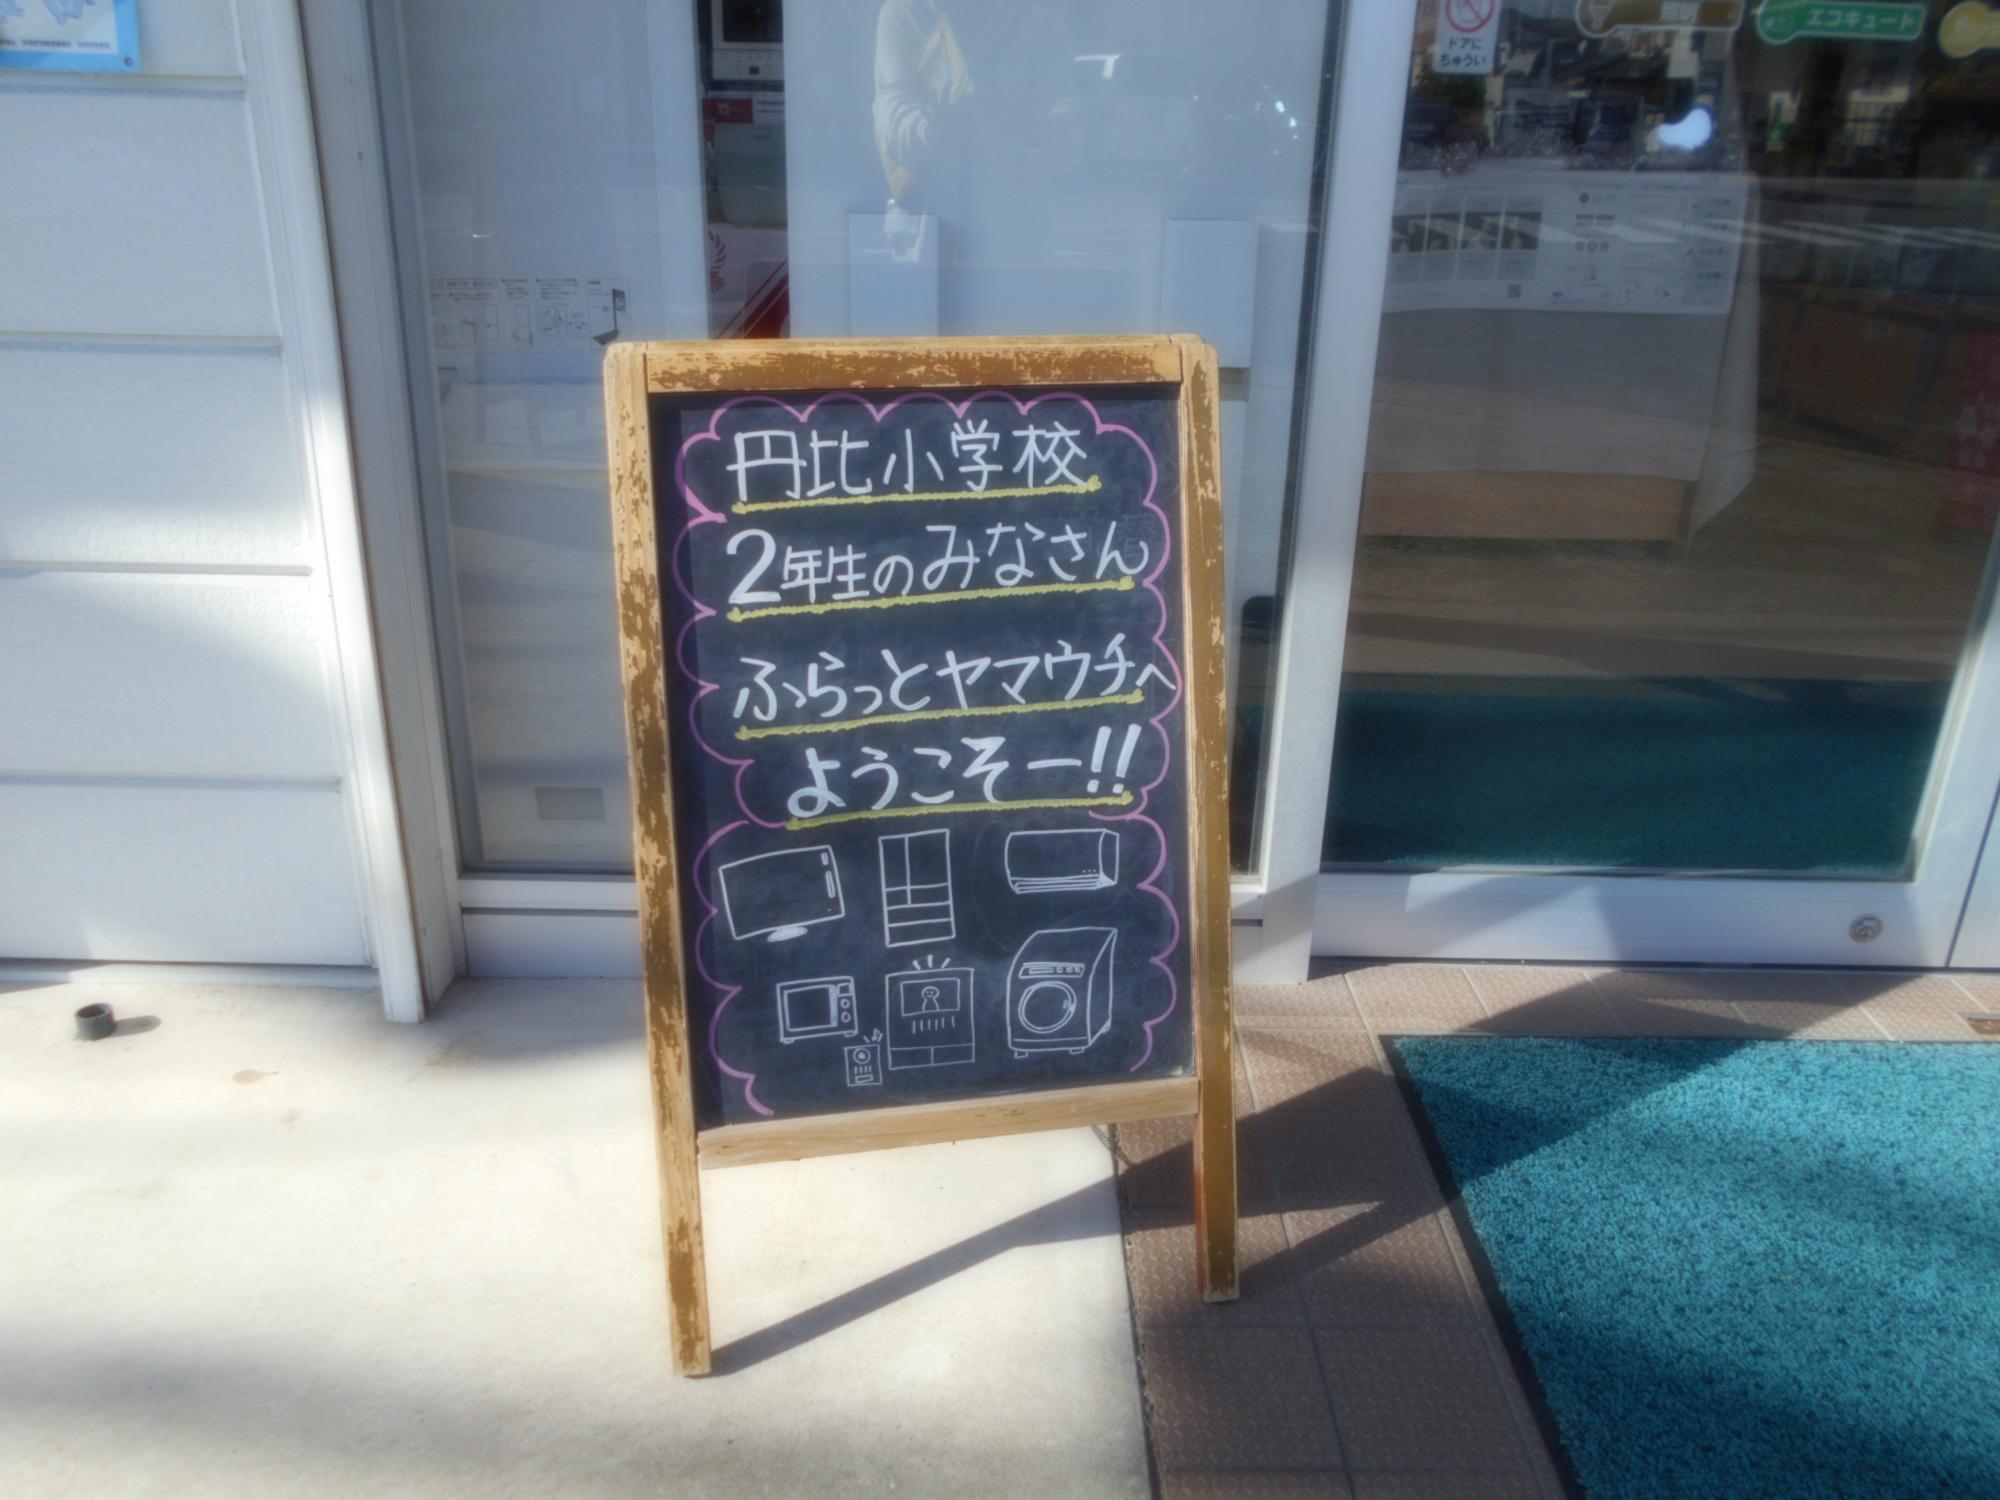 円比小学校
2年生のみなさん
ふらっとヤマウチへ
ようこそー!!
ドアに
ちゅうい
照明
エコキュート